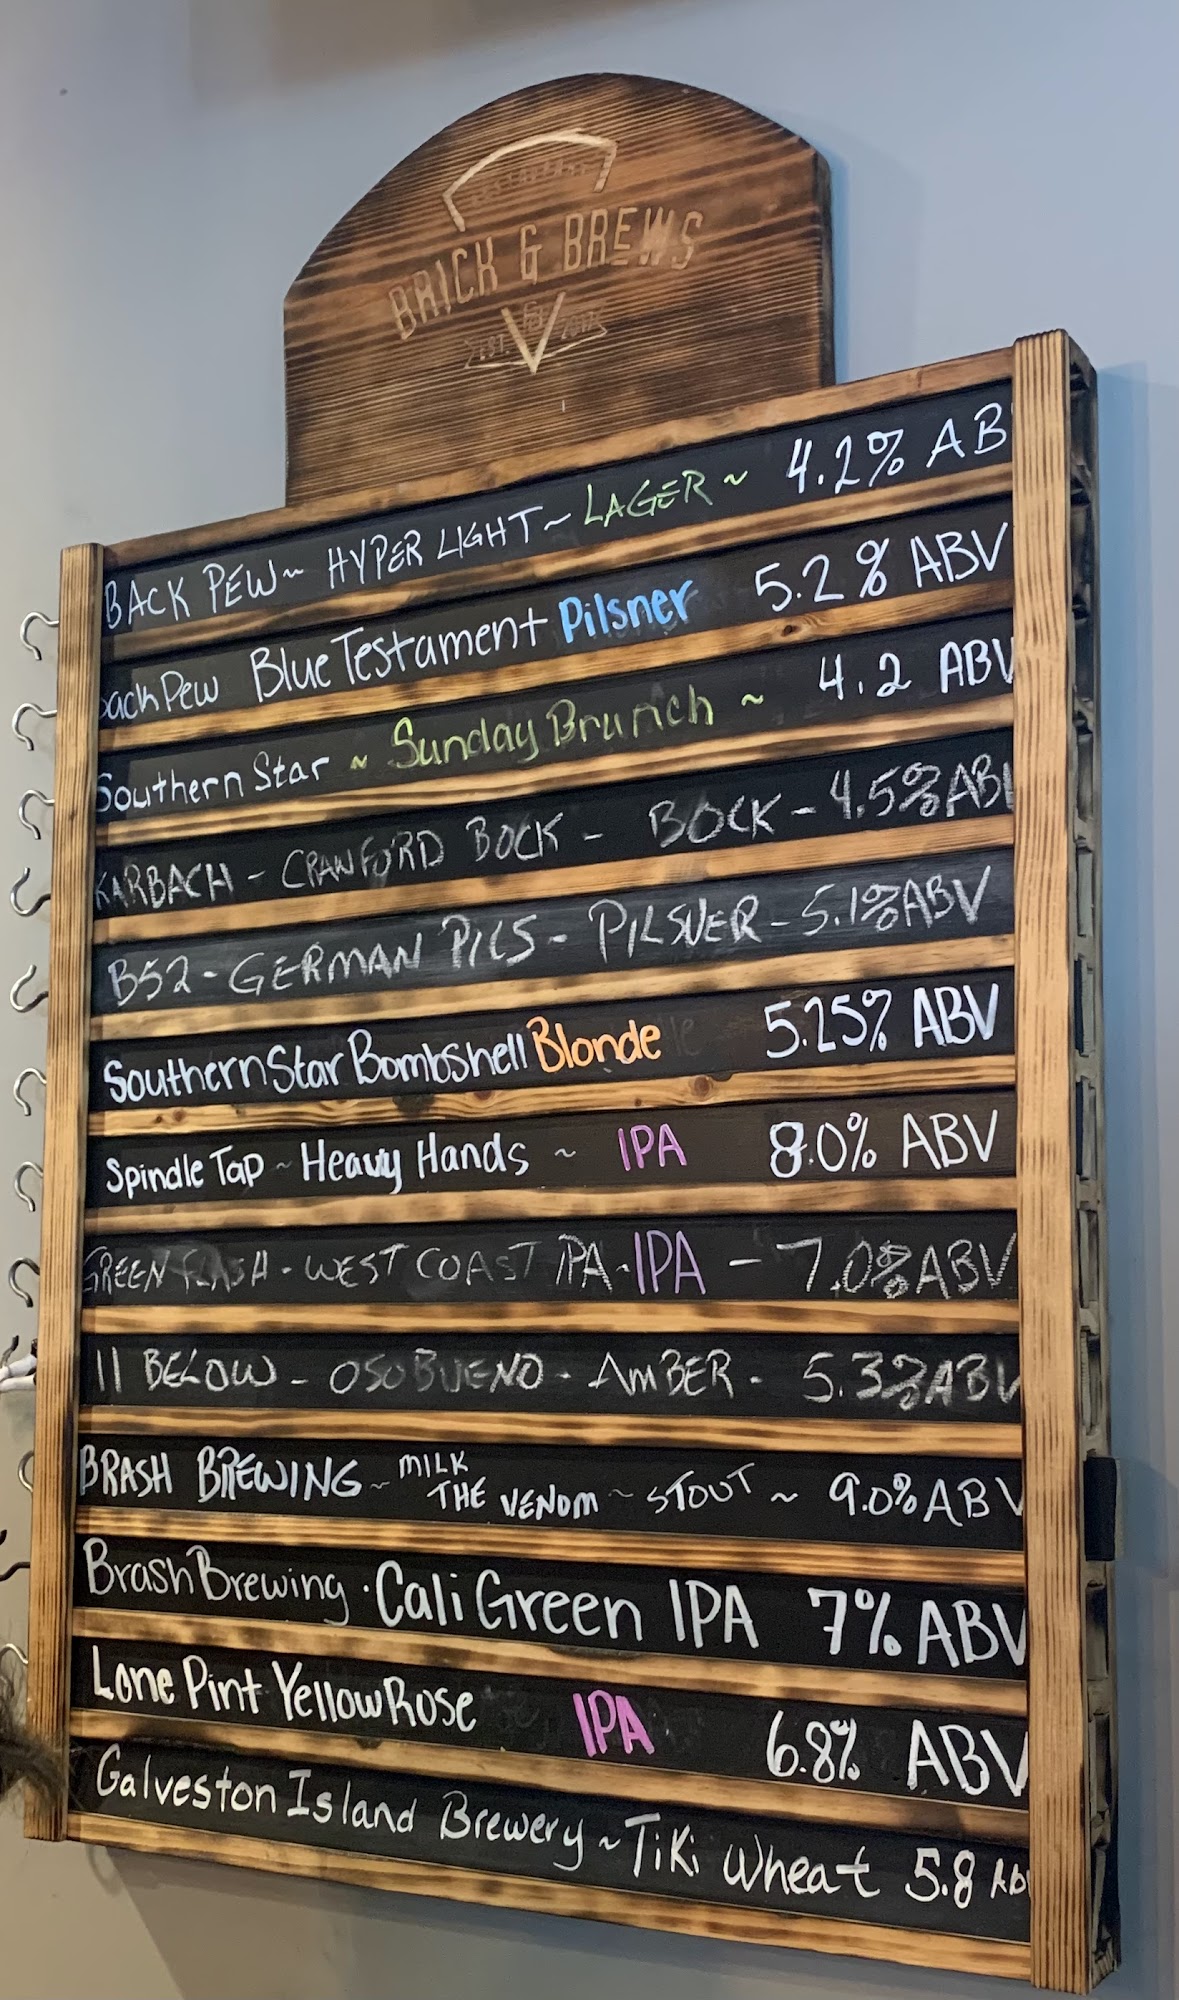 BRICK & BREWS
EST. 2017
BACK PEW ~ HYPER LIGHT ~ LAGER ~ 4.2% AB
Back Pew Blue Testament Pilsner 5.2% ABV
Southern Star ~ Sunday Brunch ~ 4.2 ABV
KARBACH - CRAWFORD BOCK - BOCK - 4.5% ABV
B52 - GERMAN PILS - PILSNER - 5.1% ABV
Southern Star Bombshell Blonde 5.25% ABV
Spindle Tap ~ Heavy Hands ~ IPA 8.0% ABV
GREEN FLASH - WEST COAST IPA - IPA - 7.0% ABV
11 BELOW - OSO BUENO - AMBER - 5.3% ABV
BRASH BREWING ~ MILK THE VENOM ~ STOUT ~ 9.0% ABV
Brash Brewing · Cali Green IPA 7% ABV
Lone Pint Yellow Rose IPA 6.8% ABV
Galveston Island Brewery ~ Tiki Wheat 5.8 Ab